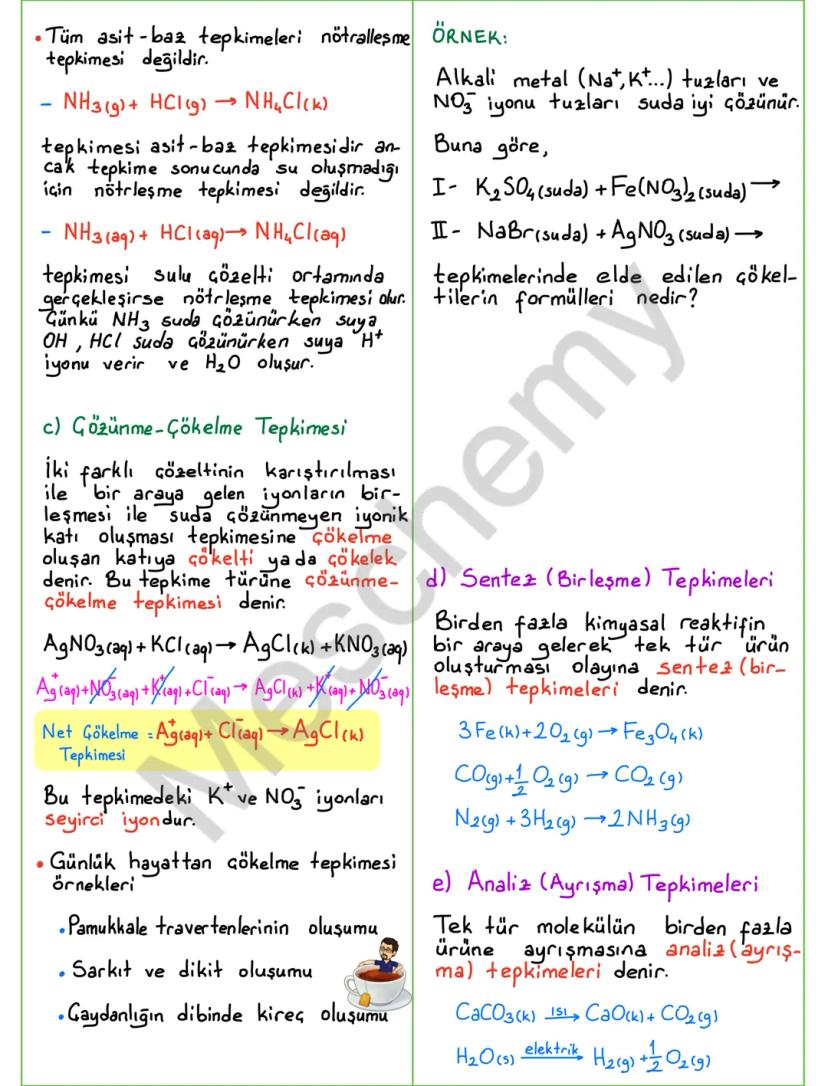 • Tüm asit-baz tepkimeleri nötralleşme
tepkimesi değildir.
- NH₃(g) + HCl(g) → NH₄Cl(k)
tepkimesi asit-baz tepkimesidir an-
cak tepkime sonucunda su oluşmadığı
için nötrleşme tepkimesi değildir.
- NH₃(aq) + HCl(aq) → NH₄Cl(aq)
tepkimesi sulu çözelti ortamında
gerçekleşirse nötrleşme tepkimesi olur.
Çünkü NH₃ suda çözünürken suya
OH⁻, HCl suda çözünürken suya H⁺
iyonu verir ve H₂O oluşur.
c) Çözünme-Çökelme Tepkimesi
İki farklı çözeltinin karıştırılması
ile bir araya gelen iyonların bir-
leşmesi ile suda çözünmeyen iyonik
katı oluşması tepkimesine çökelme
oluşan katıya çökelti yada çökelek
denir. Bu tepkime türüne çözünme-
çökelme tepkimesi denir.
AgNO₃(aq) + KCl(aq) → AgCl(k) + KNO₃(aq)
Ag⁺(aq) + NO₃⁻(aq) + K⁺(aq) + Cl⁻(aq) → AgCl(k) + K⁺(aq) + NO₃⁻(aq)
Net Çökelme = Ag⁺(aq) + Cl⁻(aq) → AgCl(k)
Tepkimesi
Bu tepkimedeki K⁺ ve NO₃⁻ iyonları
seyirci iyondur.
• Günlük hayattan çökelme tepkimesi
örnekleri
• Pamukkale travertenlerinin oluşumu
• Sarkıt ve dikit oluşumu
• Çaydanlığın dibinde kireç oluşumu
ÖRNEK:
Alkali metal (Na⁺, K⁺...) tuzları ve
NO₃⁻ iyonu tuzları suda iyi çözünür.
Buna göre,
I- K₂SO₄(suda) + Fe(NO₃)₂(suda) →
II- NaBr(suda) + AgNO₃(suda) →
tepkimelerinde elde edilen çökel-
tilerin formülleri nedir?
d) Sentez (Birleşme) Tepkimeleri
Birden fazla kimyasal reaktifin
bir araya gelerek tek tür ürün
oluşturması olayına sentez (bir-
leşme) tepkimeleri denir.
3Fe(k) + 2O₂(g) → Fe₃O₄(k)
CO(g) + 1/2 O₂(g) → CO₂(g)
N₂(g) + 3H₂(g) → 2NH₃(g)
e) Analiz (Ayrışma) Tepkimeleri
Tek tür molekülün birden fazla
ürüne ayrışmasına analiz (ayrış-
ma) tepkimeleri denir.
CaCO₃(k) ısı→ CaO(k) + CO₂(g)
H₂O(s) elektrik→ H₂(g) + 1/2 O₂(g)
Meschemy